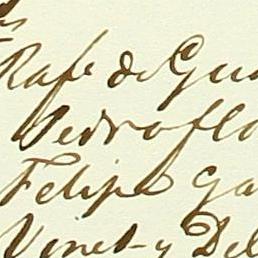 Rafe de Gu
Pedro flo
Felipe Ga
Vinet y Del